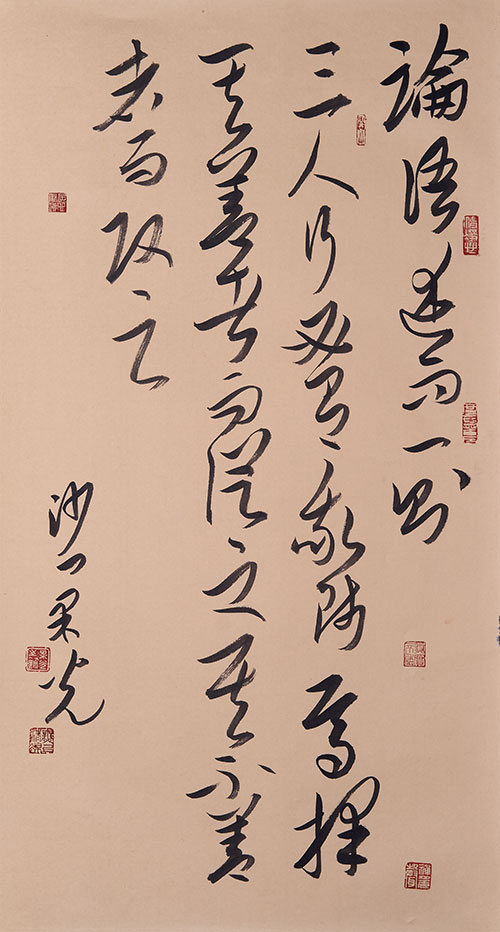 論語述而一則
三人行必有我師焉擇
其善者而從之其不善
者而改之
沙門果光